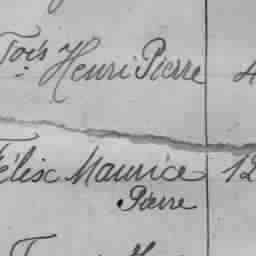 Tois Henri Pierre 4
Félix Maurice 12
Pierre